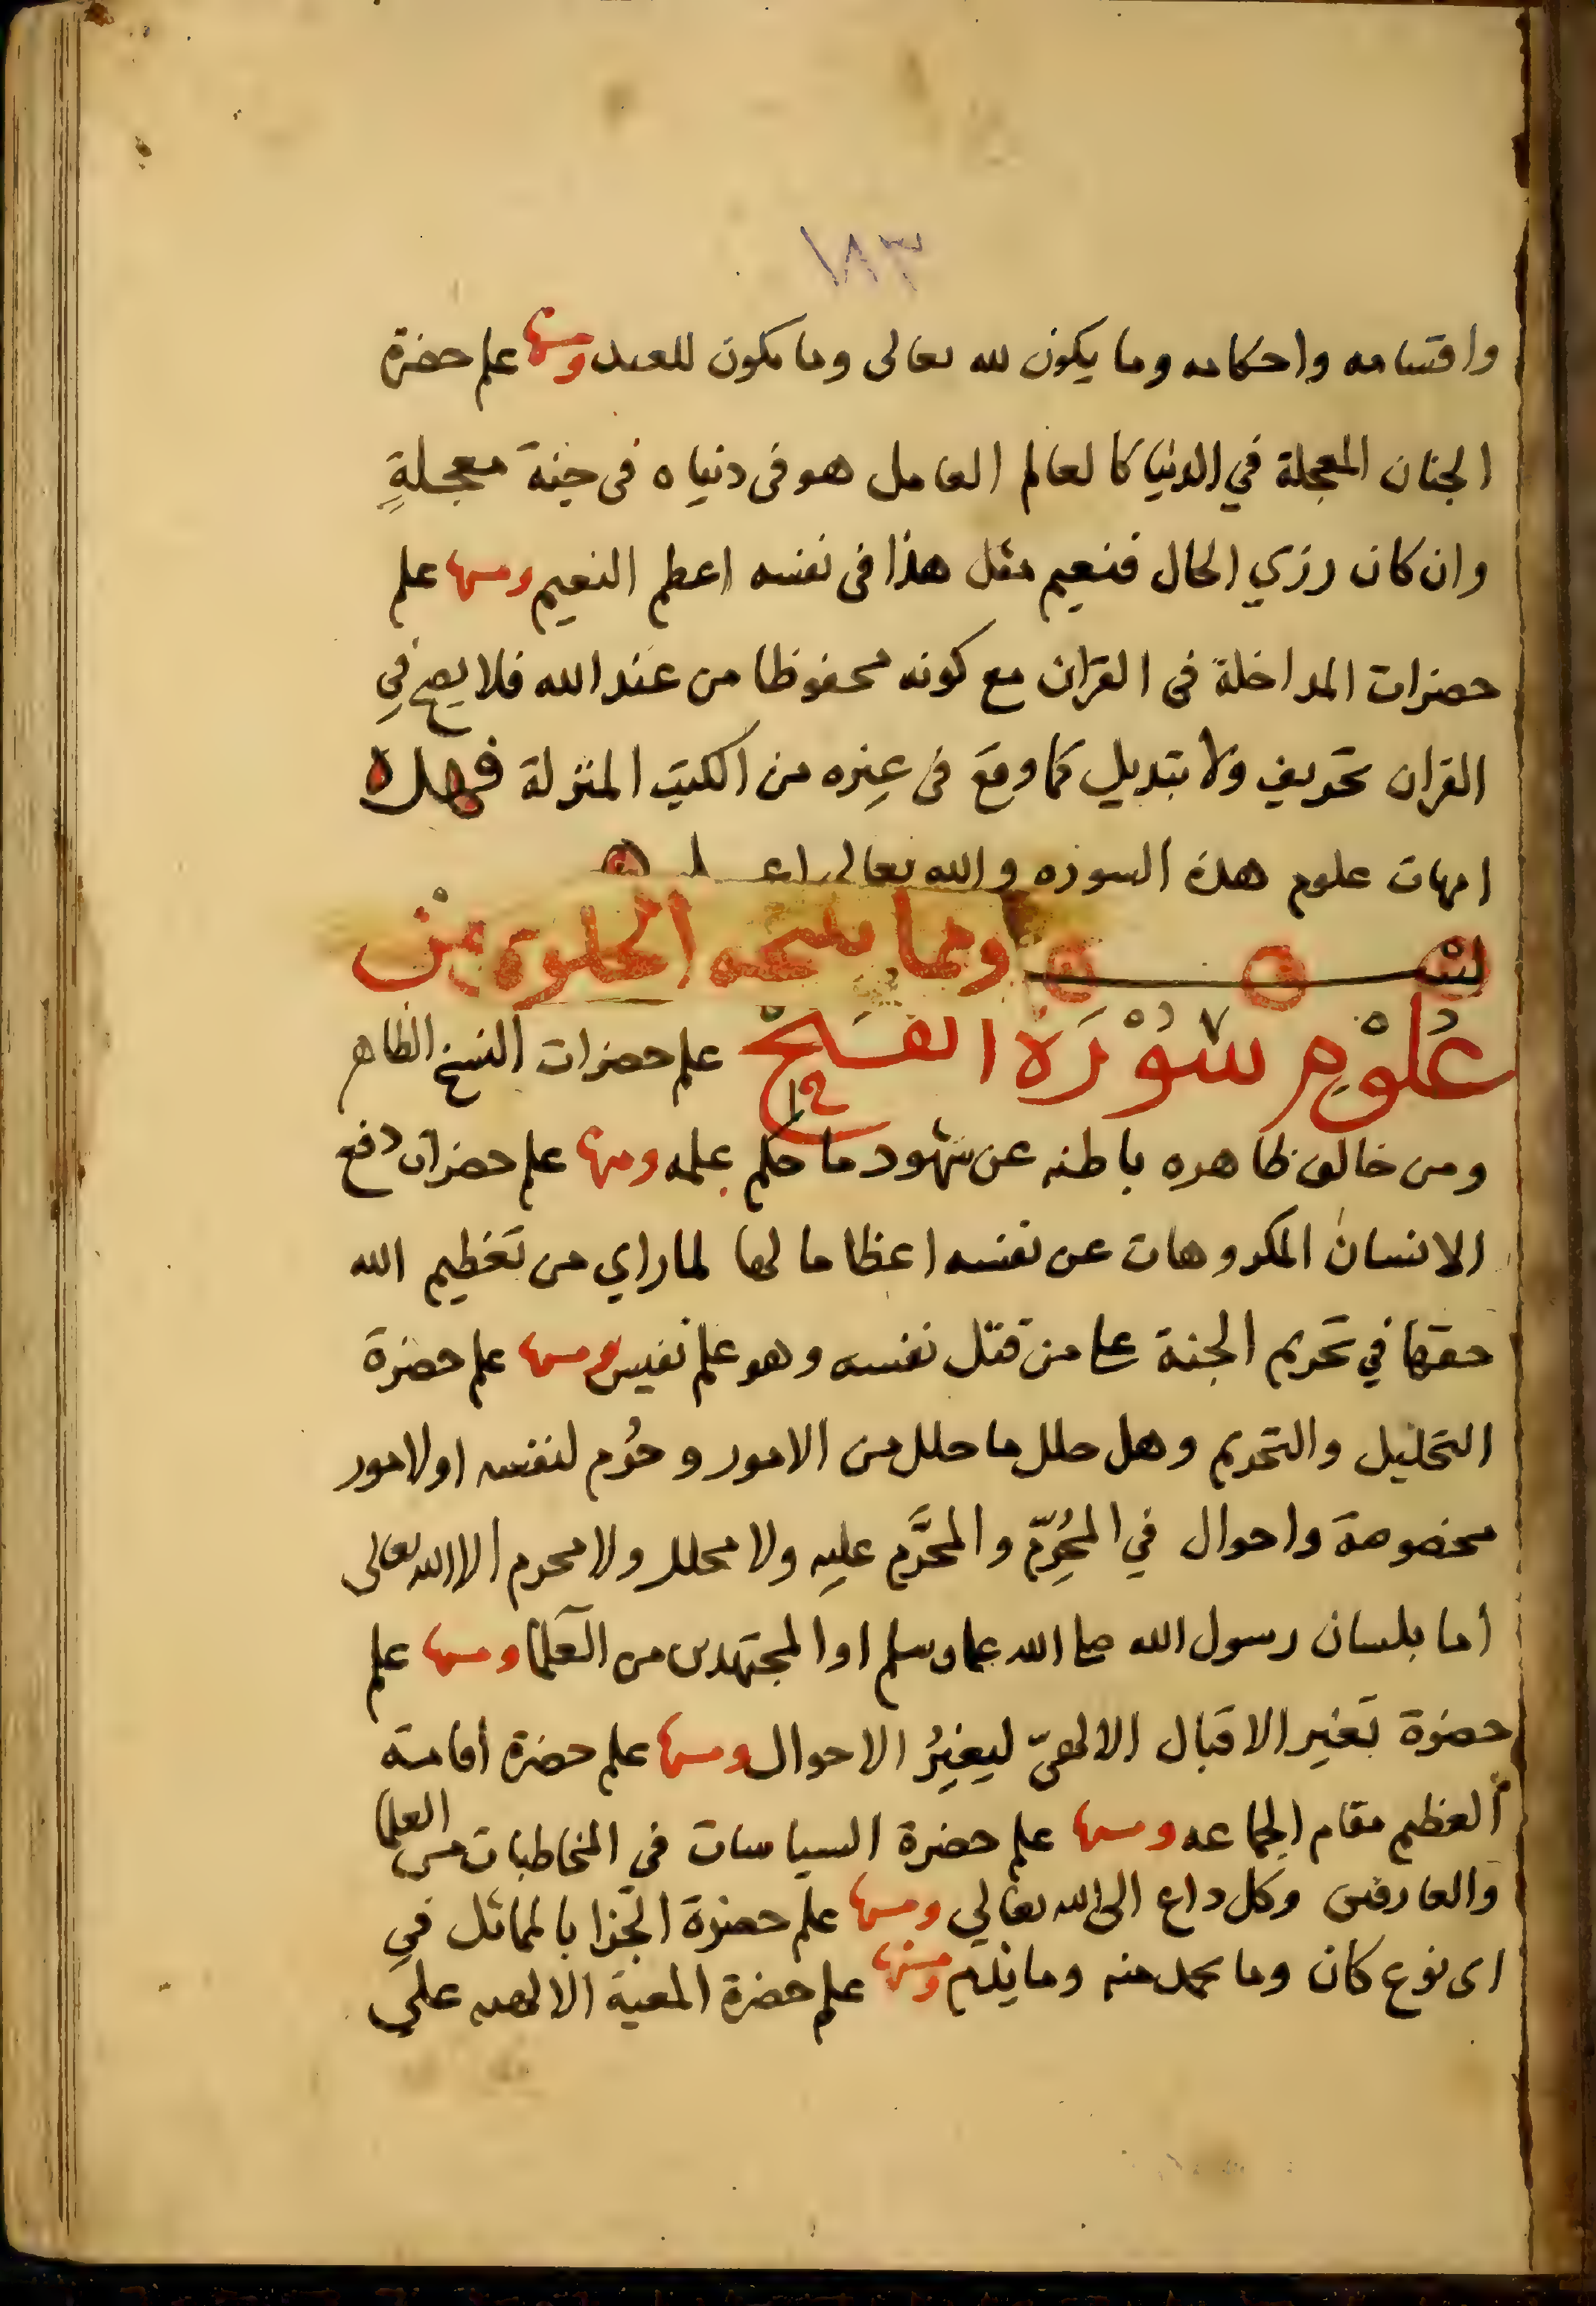 ١٨٣
واقسامه واحكامه وما يكون لله تعالى وما يكون للعبد ومنها علم حضرة
الجنان المعجلة في الدنيا كالعالم العامل هو في دنياه في جنة معجلةٍ
وان كان رزي الحال فنعيم مثل هذا في نفسه اعظم النعيم ومنها علم
حضرات المداخلة في القران مع كونه محفوظا من عند الله فلا يصح في
القران تحريف ولا تبديل كما وقع في غيره من الكتب المنزلة فهذه
امهات علوم هذه السورة والله تعالى اعلم
ومما تنتجه الخلوة من
عُلُوْمِ سُوْرَة الفَتْح علم حضرات النسخ الظاهر
ومن خالف ظاهره باطنه عن شهود ما حكم علمه ومنها علم حضرات دفع
الانسان المكروهات عن نفسه اعظاما لها لما راي من تعظيم الله
حقها في تحريم الجنة على من قتل نفسه وهو علم نفيس ومنها علم حضرة
التحليل والتحريم وهل حلل ما حلل من الامور وحُرم لنفسه او لامور
مخصوصة واحوال في المحُرِّم والمحرَّم عليه ولا محلل ولا محرم الا الله تعالى
اما بلسان رسول الله صلى الله عليه وسلم او المجتهدين من العلما ومنها علم
حضرة تغير الاقبال الالهيّ ليغيِرُ الاحوال ومنها علم حضرة اقامة
العظيم مقام الجماعه ومنها علم حضرة السياسات في المخاطبات من العلما
والعارفين وكل داع الى الله تعالي ومنها علم حضرة الجزا بالمماثل في
اي نوع كان وما يحمد منه وما يذم ومنها علم حضرة المعية الالهيه على